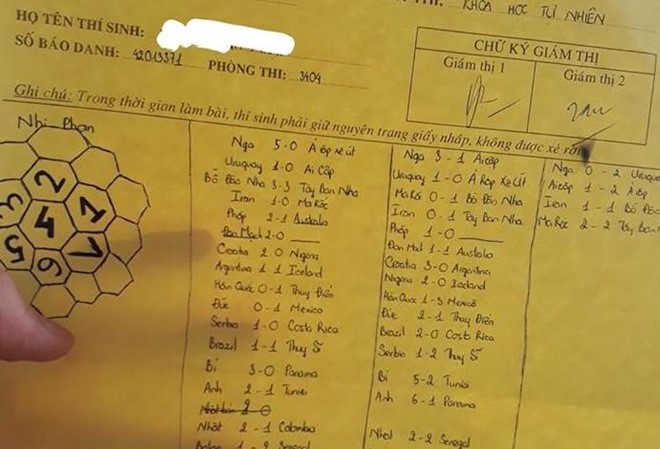 KHOA HỌC TỰ NHIÊN
HỌ TÊN THÍ SINH:
SỐ BÁO DANH: 42013371 PHÒNG THI: 3404
CHỮ KÝ GIÁM THỊ
Giám thị 1
Giám thị 2
Ghi chú: Trong thời gian làm bài, thí sinh phải giữ nguyên trang giấy nháp, không được xé rời
Nhị Phan
2
3
4
1
5
6
7
Nga 5-0 Ả ập xê út
Uruguay 1-0 Ai Cập
Bồ Đào Nha 3-3 Tây Ban Nha
Iran 1-0 Ma Rốc
Pháp 2-1 Australia
Đan Mạch 2-0
Croatia 2 0 Nigeria
Argentina 1 1 Iceland
Hàn Quốc 0-1 Thụy Điển
Đức 0-1 Mexico
Serbia 1-0 Costa Rica
Brazil 1-1 Thụy Sĩ
Bỉ 3-0 Panama
Anh 2-1 Tunisi
Nhật bản 2 0
Nhật 2-1 Colombia
Balan 1-2 Senegal
Nga 3-1 Ai cập
Uruguay 1-0 Ả Rập Xê Út
Ma Rốc 0-1 Bồ Đào Nha
Iran 0-1 Tây Ban Nha
Pháp 1-0
Đan Mạch 1-1 Australia
Croatia 3-0 Argentina
Nigeria 2-0 Iceland
Hàn Quốc 1-3 Mexicô
Đức 2-1 Thụy Điển
Brazil 2-0 Costa Rica
Serbia 1-2 Thụy Sĩ
Bỉ 5-2 Tunisi
Anh 6-1 Panama
Nhật 2-2 Senegal
Nga 0-2 Urugua
Ai cập 1-2 Ả
Iran 1-1 Bồ Đào
Ma Rốc 2-2 Tây Ban